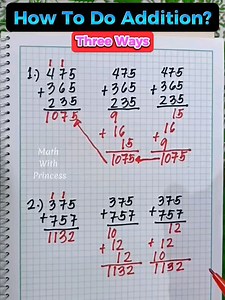 How To Do Addition?
Three Ways
1 1
1.) 475 475 475
+365 +365 +365
235 235 235
1075 9 15
+16 +16
15 9
1075 1075
Math
With
Princess
1 1
2.) 375 375 375
+757 +757 +757
1132 10 12
+12 +12
12 10
1132 1132